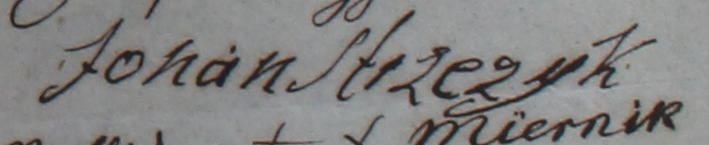 Johan Strzezyk
Miernik